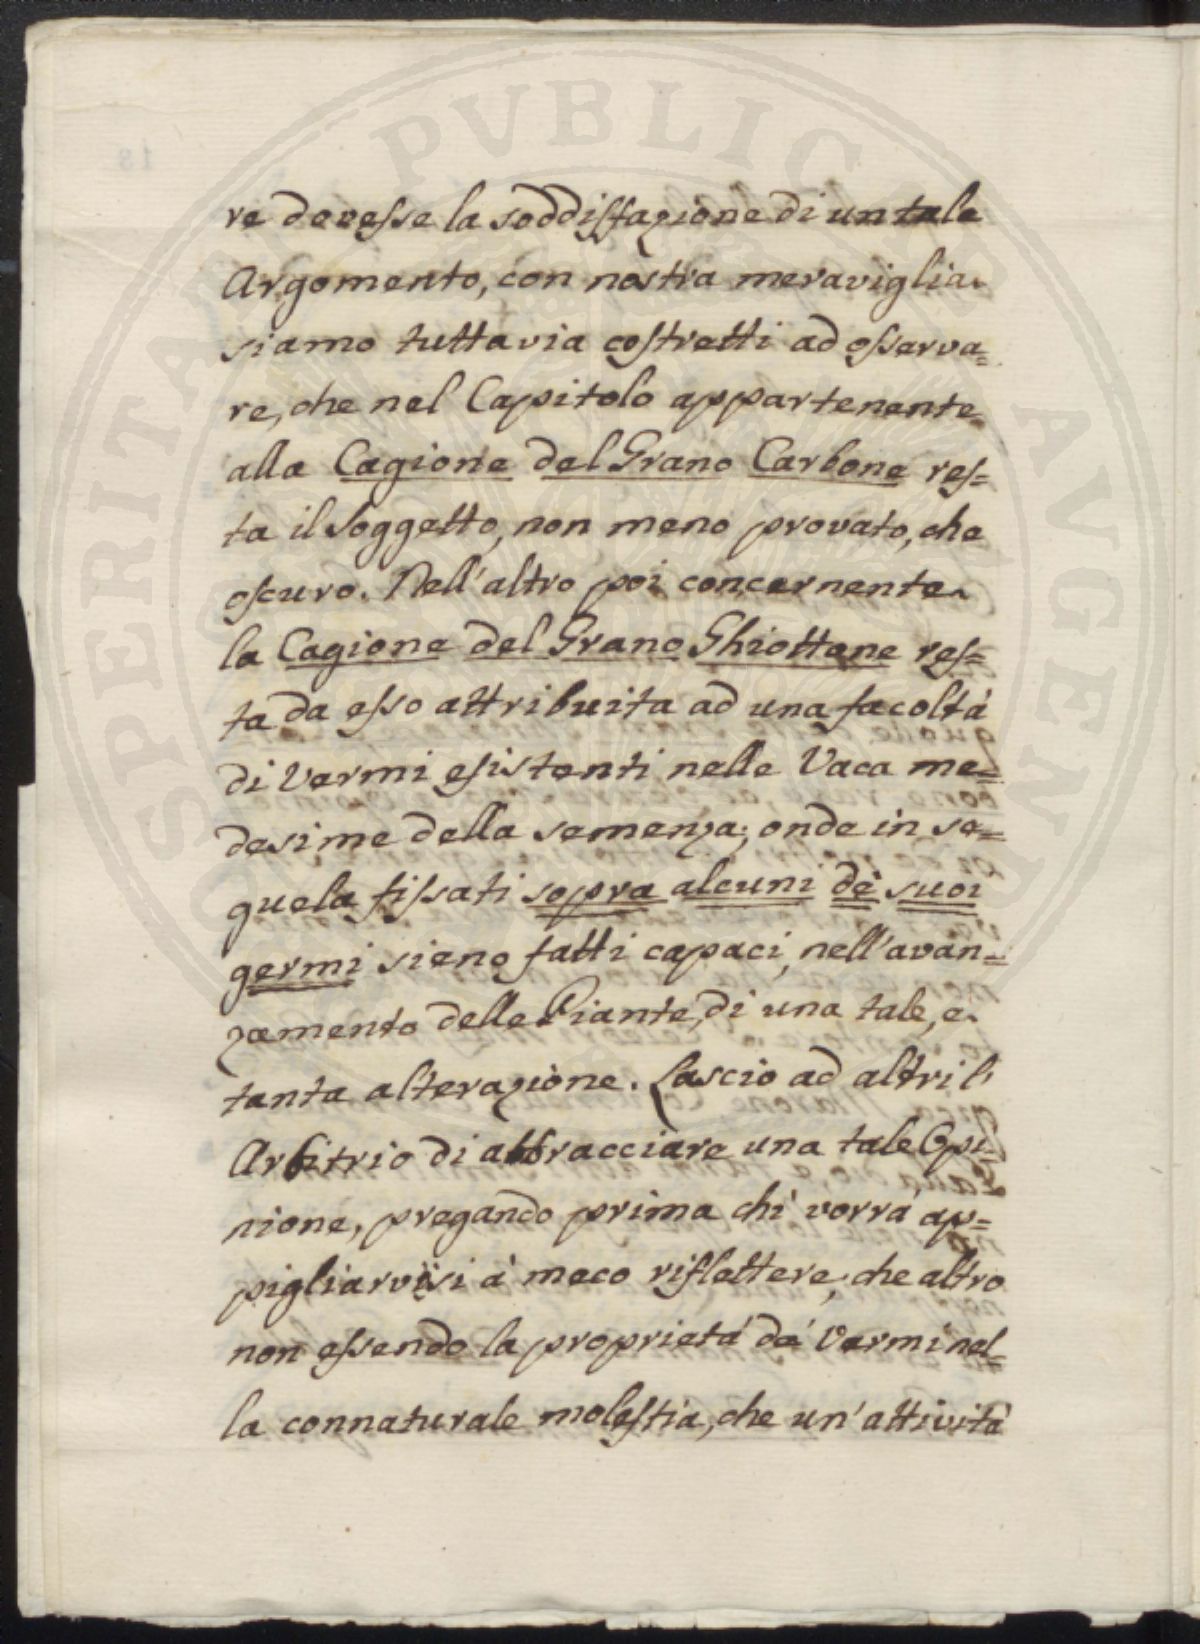 PROSPERITATI PVBLICAE AVGENDAE
re dovesse la soddisfazione di un tale
Argomento, con nostra meraviglia
siamo tuttavia costretti ad osserva=
re, che nel Capitolo appartenente
alla Cagione del Grano Carbone res=
ta il Soggetto, non meno provato, che
oscuro. Nell'altro poi concernente
la Cagione del Grano Ghiottone res=
ta da esso attribuita ad una facoltá
di Vermi esistenti nelle Vaca me=
desime della semenza; onde in se=
guela fissati sopra alcuni dé suoi
germi sieno fatti capaci, nell'avan=
zamento delle Piante, di una tale, e
tanta alterazione. Lascio ad altri l'
Arbitrio di abbracciare una tale Opi=
nione, pregando prima chi vorrá ap=
pigliarvisi á meco riflettere, che altro
non essendo la proprietá dé Vermi nel=
la connaturale molestia, che un'attivitá